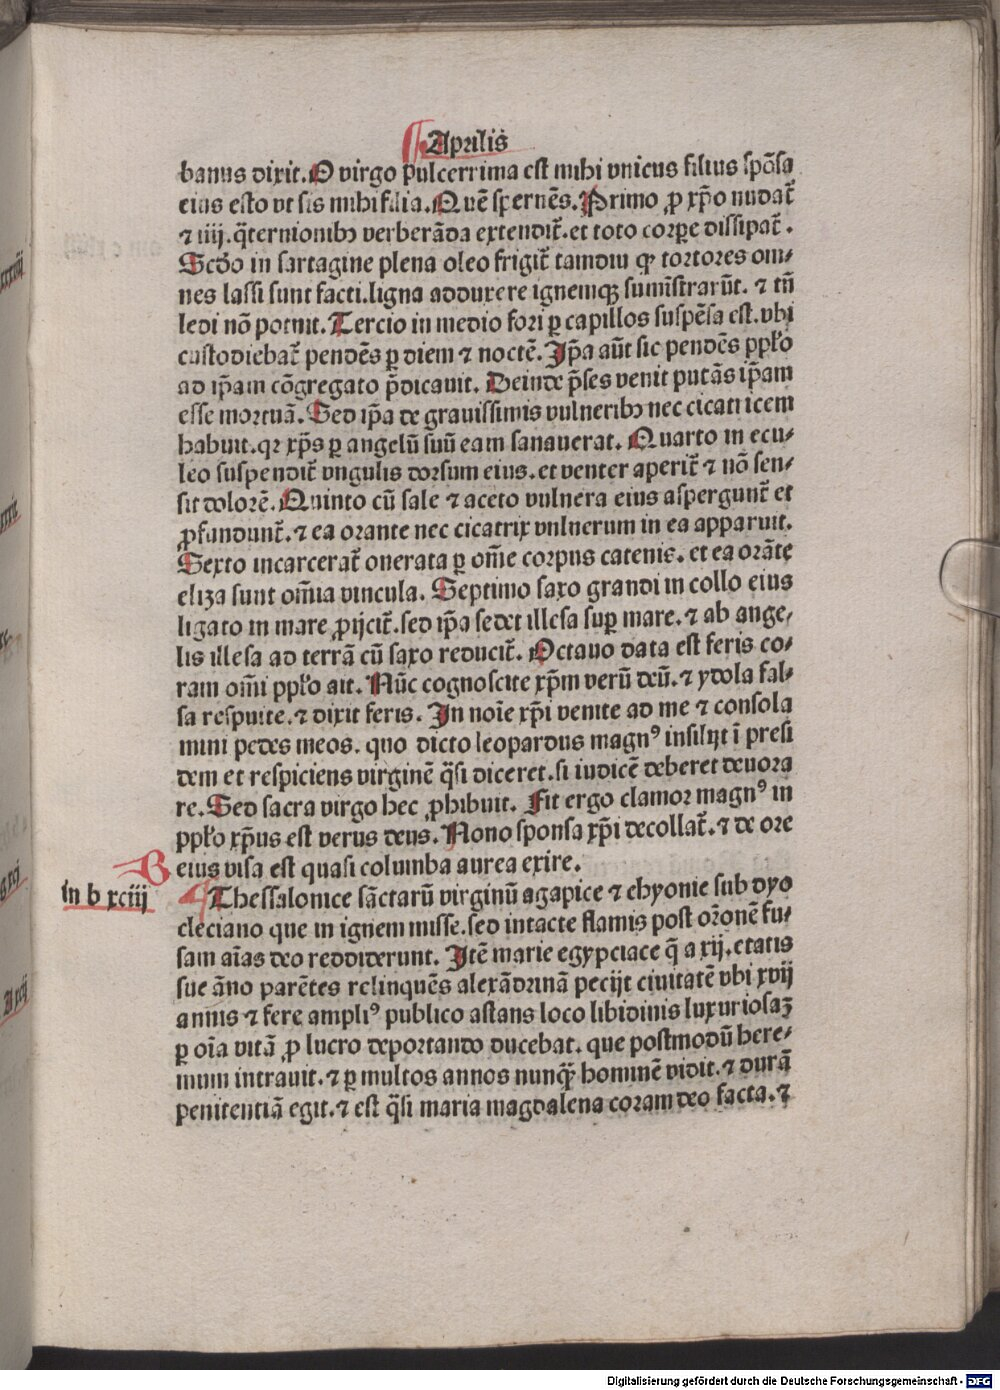 Aprilis
banus dixit. O virgo pulcerrima est mihi vnicus filius spōsa
eius esto vt sis mihi filia. Quē spernēs. Primo ꝓ xp̄o nudat᷑
⁊ iiij. q̄ternionibꝫ verberāda extendit᷑. et toto corꝑe dissipat᷑.
Scd̄o in sartagine plena oleo frigit᷑ tamdiu ꝙ tortores om⸗
nes lassi sunt facti. ligna adduxere ignemqꝫ sumīstrarūt. ⁊ tn̄
ledi nō potuit. Tercio in medio fori ꝑ capillos suspēsa est. vbi
custodiebat᷑ pendēs ꝑ diem ⁊ noctē. Ip̄a aūt sic pendēs ppl̄o
ad ip̄am cōgregato p̄dicauit. Deinde p̄ses venit putās ip̄am
esse mortuā. Sed ip̄a de grauissimis vulneribꝫ nec cicatricem
habuit. qꝛ xp̄s ꝑ angelū suū eam sanauerat. Quarto in ecu⸗
leo suspendit᷑ vngulis dorsum eius. et venter aperit᷑ ⁊ nō sen⸗
sit dolorē. Quinto cū sale ⁊ aceto vulnera eius aspergunt᷑ et
ꝓfundunt᷑. ⁊ ea orante nec cicatrix vulnerum in ea apparuit.
Sexto incarcerat᷑ onerata ꝑ om̄e corpus catenis. et ea orāte
eliza sunt om̄ia vincula. Septimo saxo grandi in collo eius
ligato in mare ꝓijcit᷑. sed ip̄a sedet illesa suꝑ mare. ⁊ ab ange⸗
lis illesa ad terrā cū saxo reducit᷑. Octauo data est feris co⸗
ram om̄i ppl̄o ait. Nūc cognoscite xp̄m verū deū. ⁊ ydola fal⸗
sa respuite. ⁊ dixit feris. In noīe xp̄i venite ad me ⁊ consola
mini pedes meos. quo dicto leopardus magnꝰ insilijt ī presi
dem et respiciens virginē q̄si diceret. si iudicē deberet deuora
re. Sed sacra virgo hec ꝓhibuit. Fit ergo clamor magnꝰ in
ppl̄o xp̄us est verus deus. Nono sponsa xp̄i decollat᷑. ⁊ de ore
B eius visa est quasi columba aurea exire.
in b xciij Thessalonice sāctarū virginū agapice ⁊ chyonie sub dyo
cleciano que in ignem misse. sed intacte flamis post or̄onē fu⸗
sam aīas deo reddiderunt. Itē marie egypciace q̄ a xij. etatis
sue āno parētes relinquēs alexādrinā pecijt ciuitatē vbi xvij
annis ⁊ fere ampliꝰ publico astans loco libidinis luxuriosaꝫ
ꝑ oīa vitā ꝓ lucro deportando ducebat. que postmodū here⸗
mum intrauit. ⁊ ꝑ multos annos nunqꝫ̄ hominē vidit. ⁊ durā
penitentiā egit. ⁊ est q̄si maria magdalena coram deo facta. ⁊
Digitalisierung gefördert durch die Deutsche Forschungsgemeinschaft - DFG